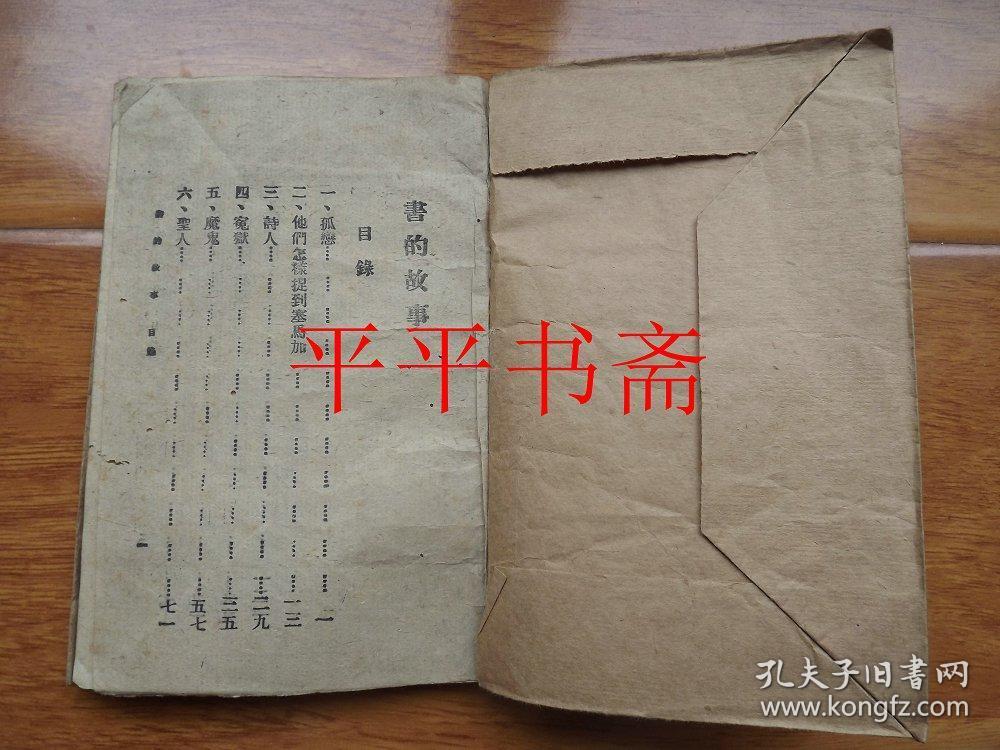 書的故事
目錄
一、孤戀 二
二、他們怎樣捉到塞馬加 一三
三、詩人 二九
四、冤獄 三五
五、魔鬼 五七
六、聖人 七一
書的故事 目錄 一
平平书斋
孔夫子旧書网
www.kongfz.com